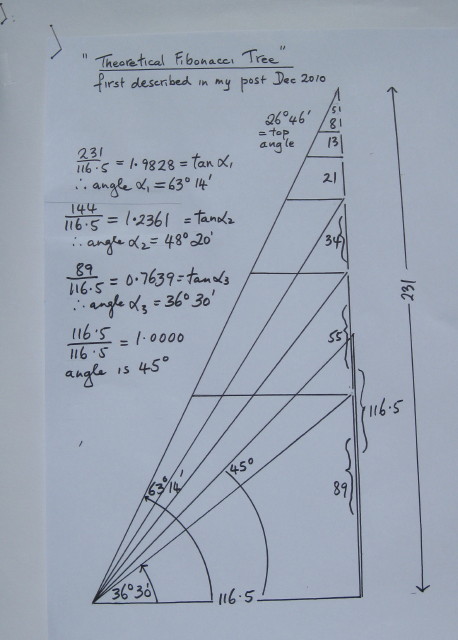 "Theoretical Fibonacci Tree"
first described in my post Dec 2010
26°46'
= top
angle
1
5
8
13
21
34
55
89
231
116.5
231/116.5 = 1.9828 = tan α₁
∴ angle α₁ = 63° 14'
144/116.5 = 1.2361 = tanα₂
∴ angle α₂ = 48° 20'
89/116.5 = 0.7639 = tanα₃
∴ angle α₃ = 36° 30'
116.5/116.5 = 1.0000
angle is 45°
63° 14'
45°
36° 30'
116.5